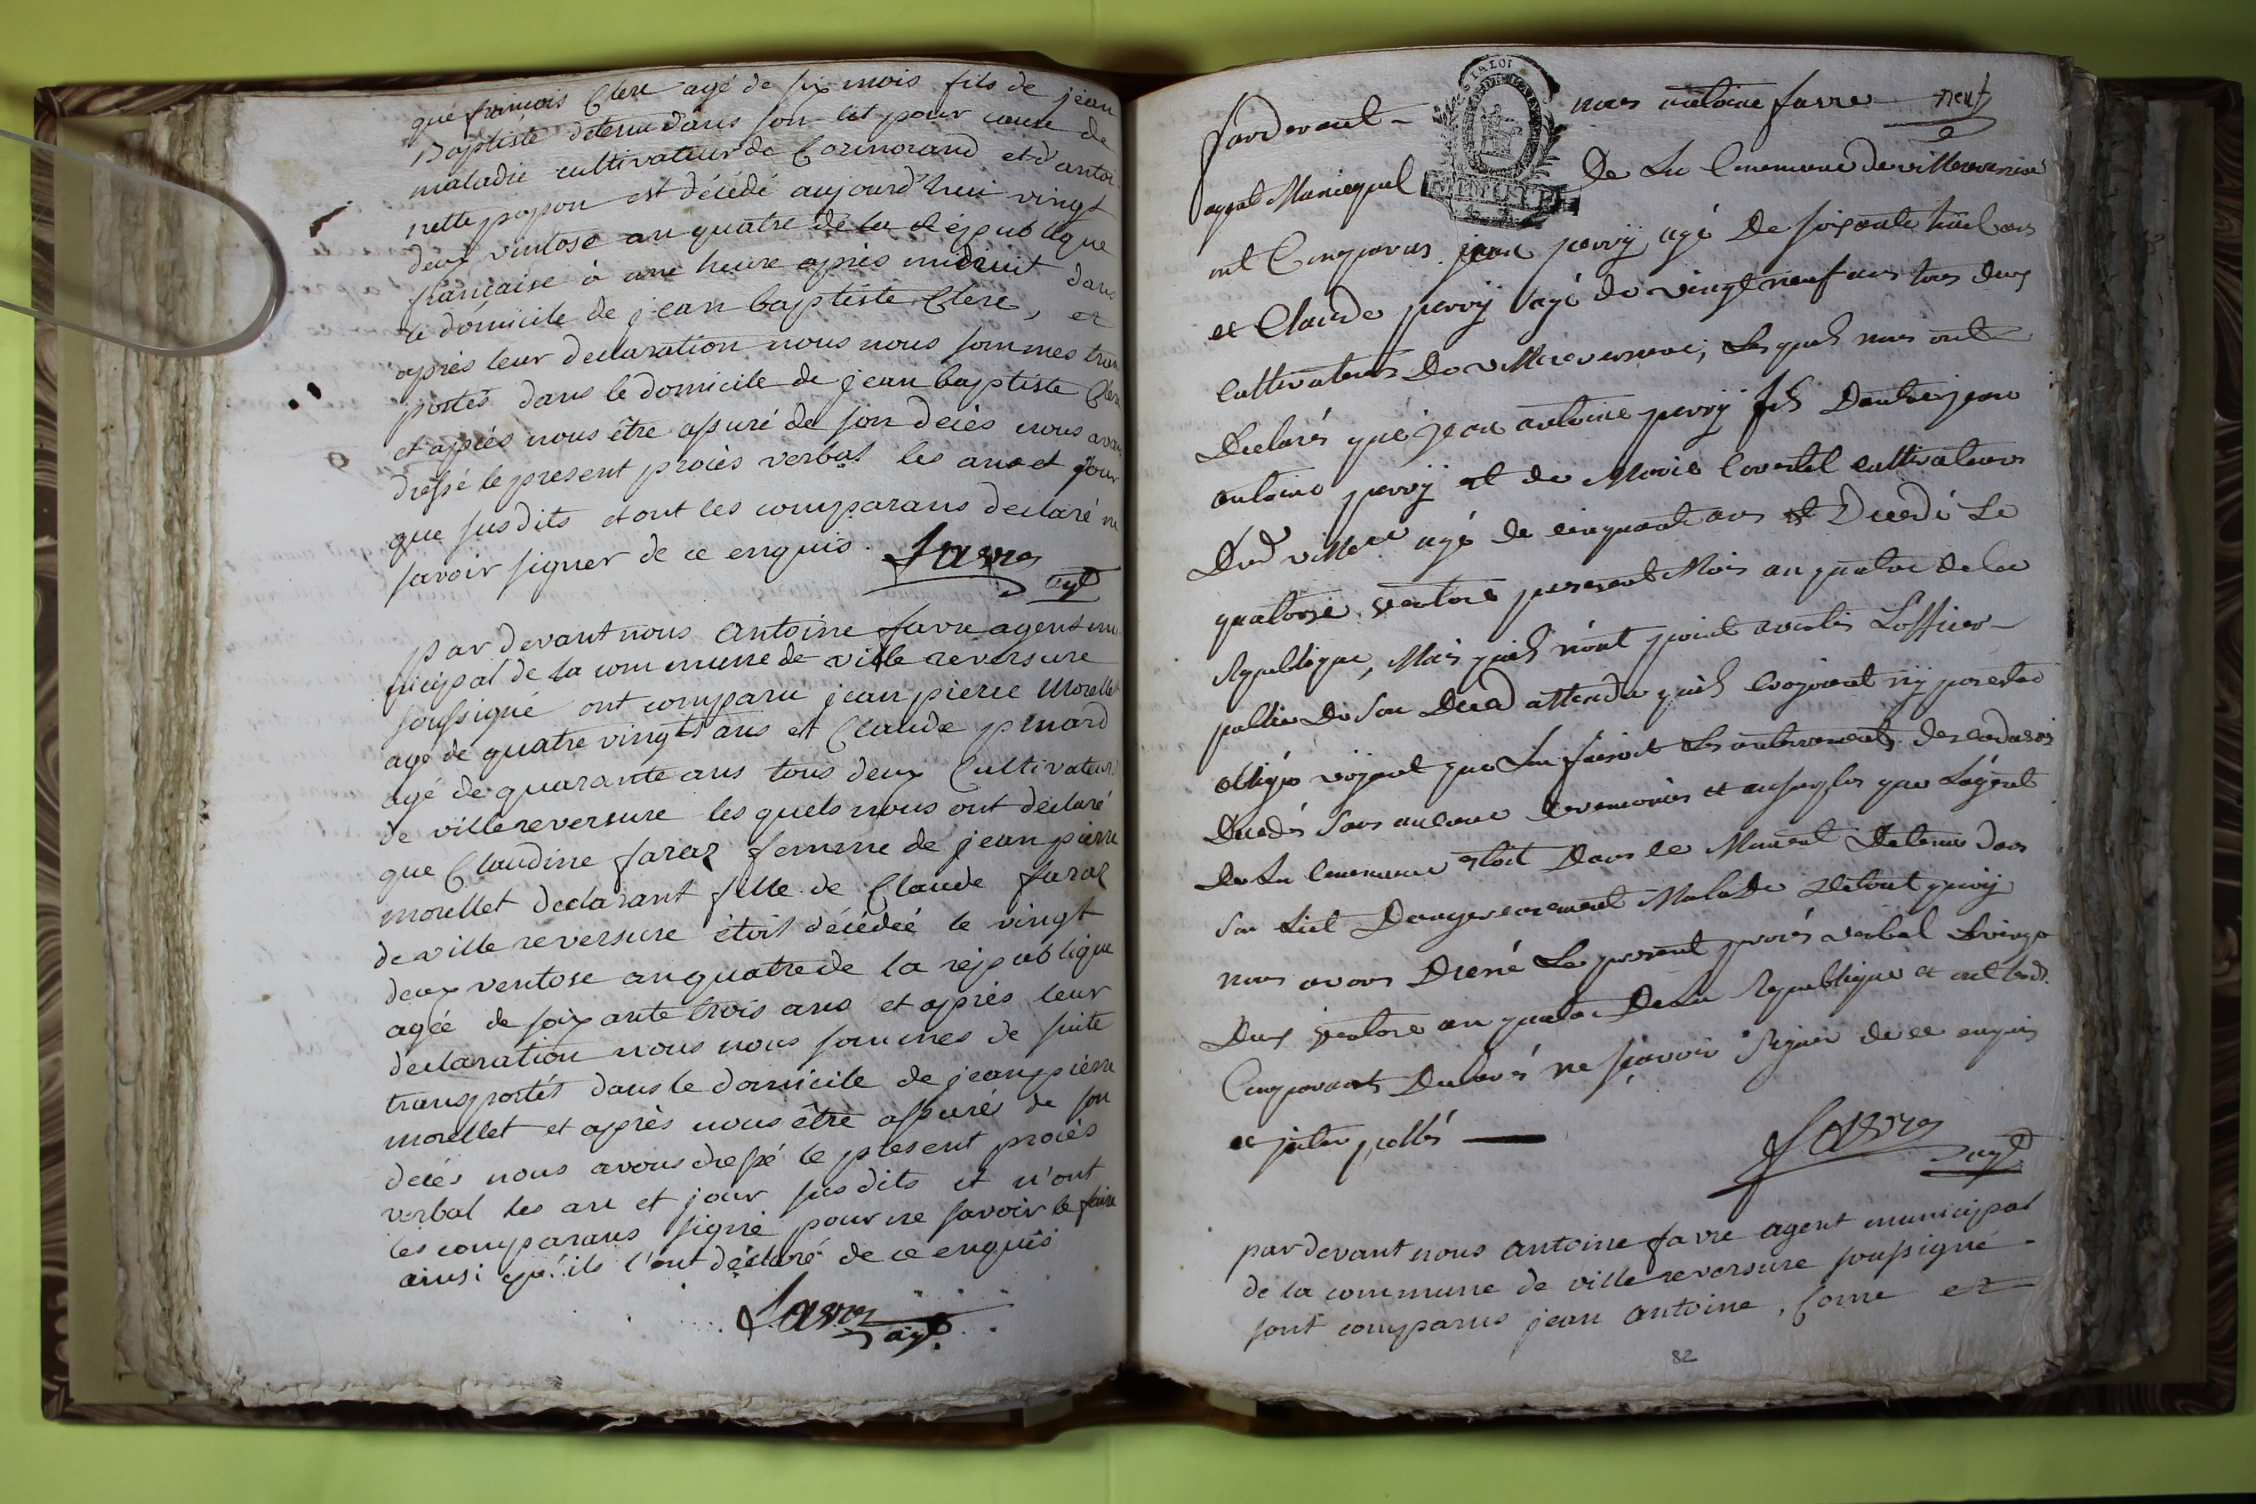 que françois Clerc agé de six mois fils de jean
Baptiste detenu dans son lit pour cause de
maladie cultivateur de Cormorand et d'antoi
nette popon est décédé aujourd'hui vingt
deux vintose an quatre de la république
française à une heure après midnuit dans
le domicile de jean baptiste Clerc, et
après leur declaration nous nous sommes trans
portés dans le domicile de jean baptiste Clerc
et après nous être assuré de son décès nous avons
dressé le present procès verbal les an et jour
que susdits et ont les comparans declaré ne
savoir signer de ce enquis.
favre
agt
par devant nous Antoine favre agent mu
nicipal de la commune de ville reversure
soussigné ont comparu jean pierre Morellet
agé de quatre vingts ans et Claude pinard
agé de quarante ans tous deux Cultivateurs
de ville reversure les quels nous ont declaré
que Claudine faraz femme de jean pierre
morellet declarant fille de Claude faraz
de ville reversure étoit décédée le vingt
deux ventose an quatre de la république
agée de soixante trois ans et après leur
declaration nous nous sommes de suite
transportés dans le domicile de jean pierre
morellet et après nous être assurés de son
decés nous avons dressé le present procès
verbal les an et jour susdits et n'ont
les comparans signé pour ne savoir le faire
ainsi qu'ils l'ont déclaré de ce enquis
favre
agt.
LA LOI
Pardevant nous antoine favre neuf
agent Municipal De La Commune de villereversure
ont Comparus jean perrÿ agé De soixante huit ans
et Claude perrÿ agé de vingt neuf ans tous deux
Cultivateurs De villereversure, Lesquels nous ont
Declarés que jean antoine perrÿ fils Dautre jean
antoine perrÿ et de Marie Cultivateurs
Dud villere agé de cinquante ans est Decedé Le
quatorze ventose present Mois an quatre de la
Republique, Mais quils n'ont point avertis L'officier
public De Son Deced attendu quils croyoient n'ÿ pas etre
obligés voyant que Lon faisoit Les enterrements des cadavres
Decedés Sans aucune ceremonies et ausurplus que L'agent
De La Commune etoit Dans ce Moment Detenu dans
Son Lict Dangereusement Malade Detout quoÿ
nous avons Dressé Le present procès verbal Le vingt
Deux ventose an quatre De La Republique et ont les d.
Comparants Declarés ne sçavoir Signer de ce enquis
et jnterpellés
favre
agt
par devant nous antoine favre agent municipal
de la commune de ville reversure soussigné
sont comparus jean antoine, Corne et
82